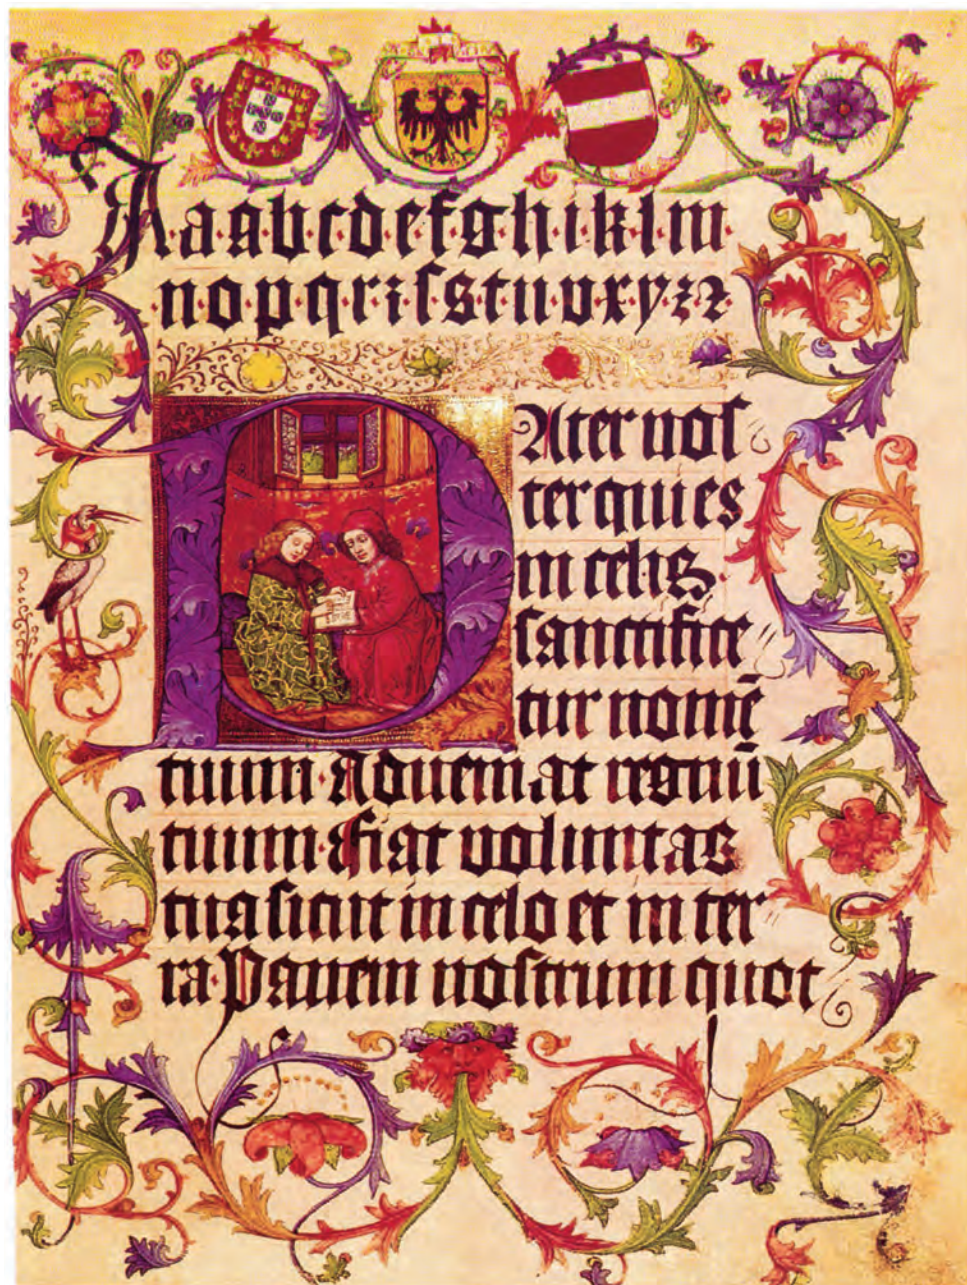 A·a·a·b·c·d·e·f·g·h·i·k·l·m·
n·o·p·q·r·ꝛ·ſ·s·t·u·v·x·y·z·ꝛ
Ater noſ
ter qui es
in celis
ſanctifice
tur nomē
tuum· Adueniat regnū
tuum· fiat voluntas
tua ſicut in celo et in ter
ra· Panem noſtrum quot